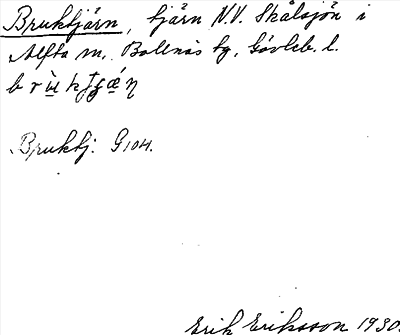 Bruktjärn, tjärn N.V. Skålsjön i
Alfta sn, Bollnäs tg, Gävleb. l.
Bruktj. G104.
Erik Eriksson 1930.